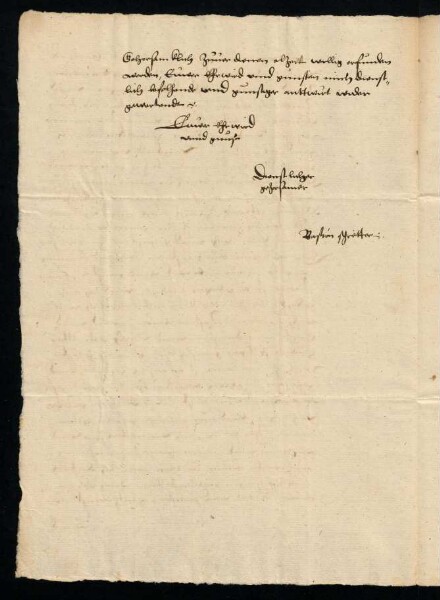 Gehorsamklich Zuuerdienen alZeit willig erfunden
werden, Euwer Ehrwird vnd gunsten mich dienst-
lich befelhende vnd gunstige antwirt wider
gewertende
Euwer Ehrwird
vnnd gunst
Dienstlicher
gehorsamer
Bastian